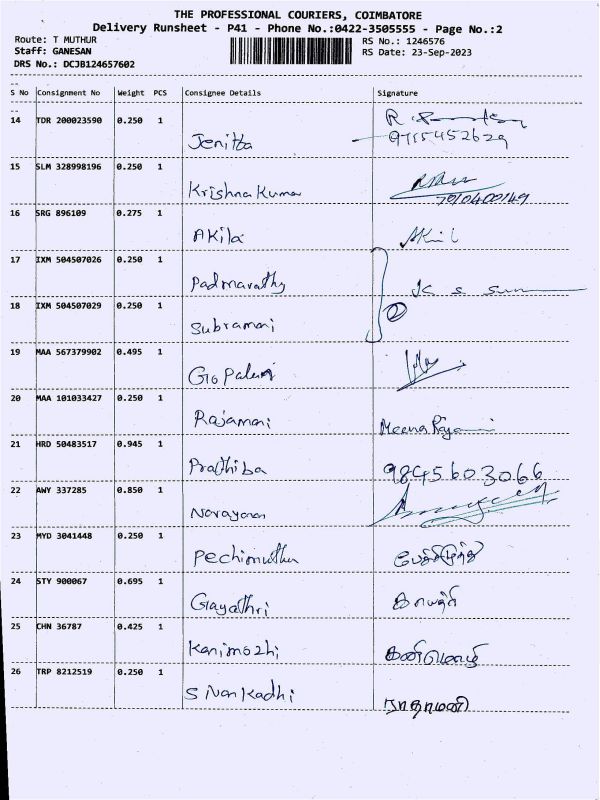 THE PROFESSIONAL COURIERS, COIMBATORE
Delivery Runsheet - P41 - Phone No.:0422-3505555 - Page No.:2
Route: T MUTHUR
RS No.: 1246576
Staff: GANESAN
RS Date: 23-Sep-2023
DRS No.: DCJB124657602
S No Consignment No Weight PCS Consignee Details Signature
14 TDR 200023590 0.250 1
Jenitta 9715452629
15 SLM 328998196 0.250 1
Krishna Kumar
16 SRG 896109 0.275 1
Akila Akil
17 IXM 504507026 0.250 1
Padmavathy K S
18 IXM 504507029 0.250 1 2
Subramani
19 MAA 567379902 0.495 1
20 MAA 101033427 0.250 1
Rajamani Meena
21 HRD 50483517 0.945 1
Prathiba 9845603066
22 AWY 337285 0.850 1
Narayanan
23 MYD 3041448 0.250 1
Pechimuthu பேச்சிமுத்து
24 STY 900067 0.695 1
Gayathri காயத்ரி
25 CHN 36787 0.425 1
Kanimozhi கனிமொழி
26 TRP 8212519 0.250 1
Sivankadhi ராதாமணி